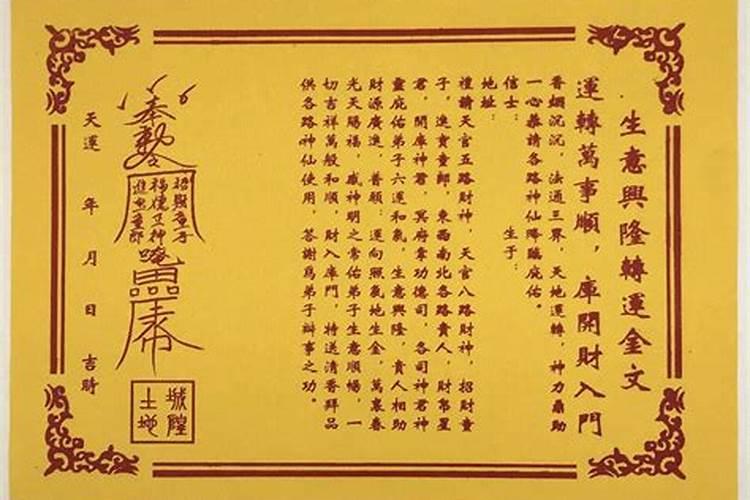 生意興隆轉運金文
運轉萬事順，庫開財入門
香烟沉沉，法通三界，天地運轉，神力鼎助
一心恭請各路神仙降臨庇佑。
信士：　生于：
地址：
禮請天官五路財神，天官八路財神，招財童
子，進寶童郎，東西南北各路貴人，財帛星
君，開庫神君，冥府掌功德司，各司神君神
靈庇佑弟子六運和氣，生意興隆，貴人相助
財源廣進，普願：運向照氣地生金，萬裏春
光天賜福，感神明之常佑弟子生意順暢，一
切吉祥萬般和順，財入庫門，特送清香拜品
供各路神仙使用，答謝爲弟子辦事之功。
奉勅令
招財童子
福德正神
進寶童郎
城隍
土地
天運　年　月　日　吉時